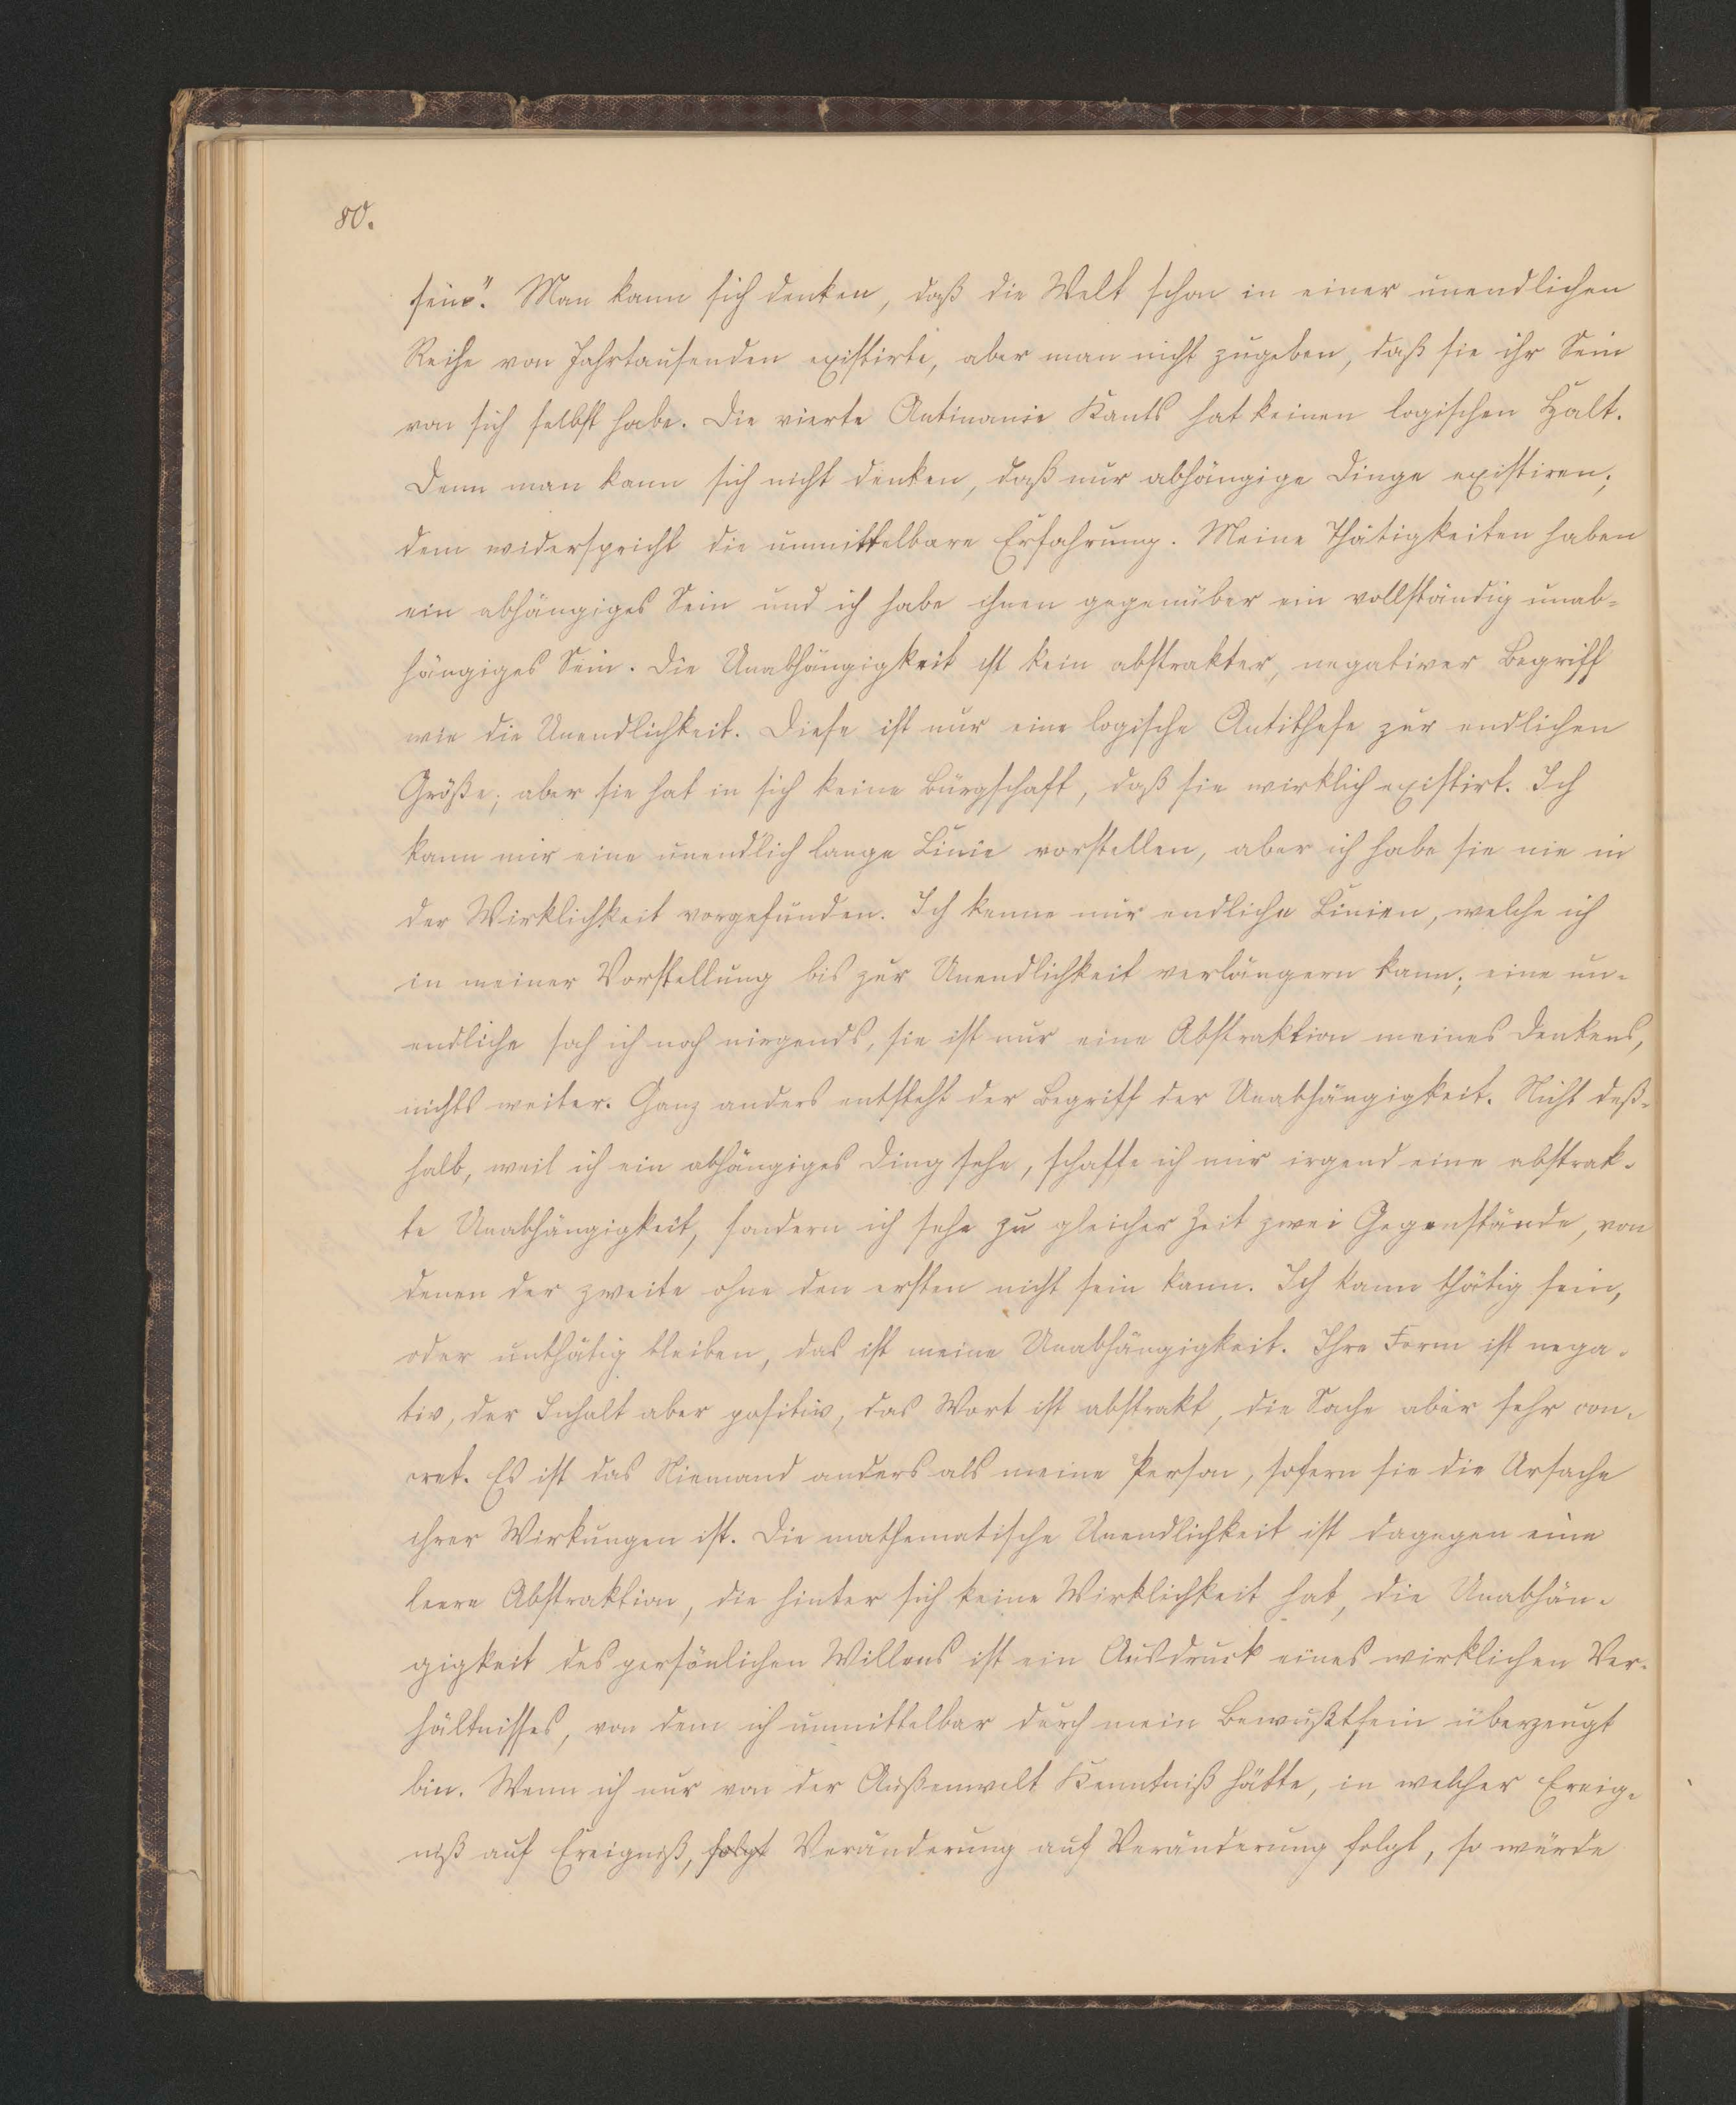 80.
sein". Man kann sich denken, daß die Welt schon in einer unendlichen
Reihe von Jahrtausenden existirte, aber man nicht zugeben, daß sie ihr Sein
von sich selbst habe. Die vierte Antinomie Kants hat keinen logischen Halt.
Denn man kann sich nicht denken, daß nur abhängige Dinge existiren;
dem widerspricht die unmittelbare Erfahrung. Meine Thätigkeiten haben
ein abhängiges Sein und ich habe ihnen gegenüber ein vollständig unab-
hängiges Sein. Die Unabhängigkeit ist kein abstrakter, negativer Begriff
wie die Unendlichkeit. Diese ist nur eine logische Antithese zur endlichen
Größe; aber sie hat in sich keine Bürgschaft, daß sie wirklich existirt. Ich
kann mir eine unendlich lange Linie vorstellen, aber ich habe sie nie in
der Wirklichkeit vorgefunden. Ich kenne nur endliche Linien, welche ich
in meiner Vorstellung bis zur Unendlichkeit verlängern kann; eine un-
endliche sah ich noch nirgends, sie ist nur eine Abstraktion meines Denkens,
nichts weiter. Ganz anders entsteht der Begriff der Unabhängigkeit. Nicht deß-
halb, weil ich ein abhängiges Ding sehe, schaffe ich mir irgend eine abstrak-
te Unabhängigkeit, sondern ich sehe zu gleicher Zeit zwei Gegenstände, von
denen der zweite ohne den ersten nicht sein kann. Ich kann thätig sein,
oder unthätig bleiben, das ist meine Unabhängigkeit. Ihre Form ist nega-
tiv, der Inhalt aber positiv, das Wort ist abstrakt, die Sache aber sehr con-
cret. Es ist das Niemand anders als meine Person, sofern sie die Ursache
ihrer Wirkungen ist. Die mathematische Unendlichkeit ist dagegen eine
leere Abstraktion, die hinter sich keine Wirklichkeit hat, die Unabhän-
gigkeit des persönlichen Willens ist ein Ausdruck eines wirklichen Ver-
hältnisses, von dem ich unmittelbar durch mein Bewußtsein überzeugt
bin. Wenn ich nur von der Außenwelt Kenntniß hätte, in welcher Ereig-
niß auf Ereigniß, folgt Veränderung auf Veränderung folgt, so würde